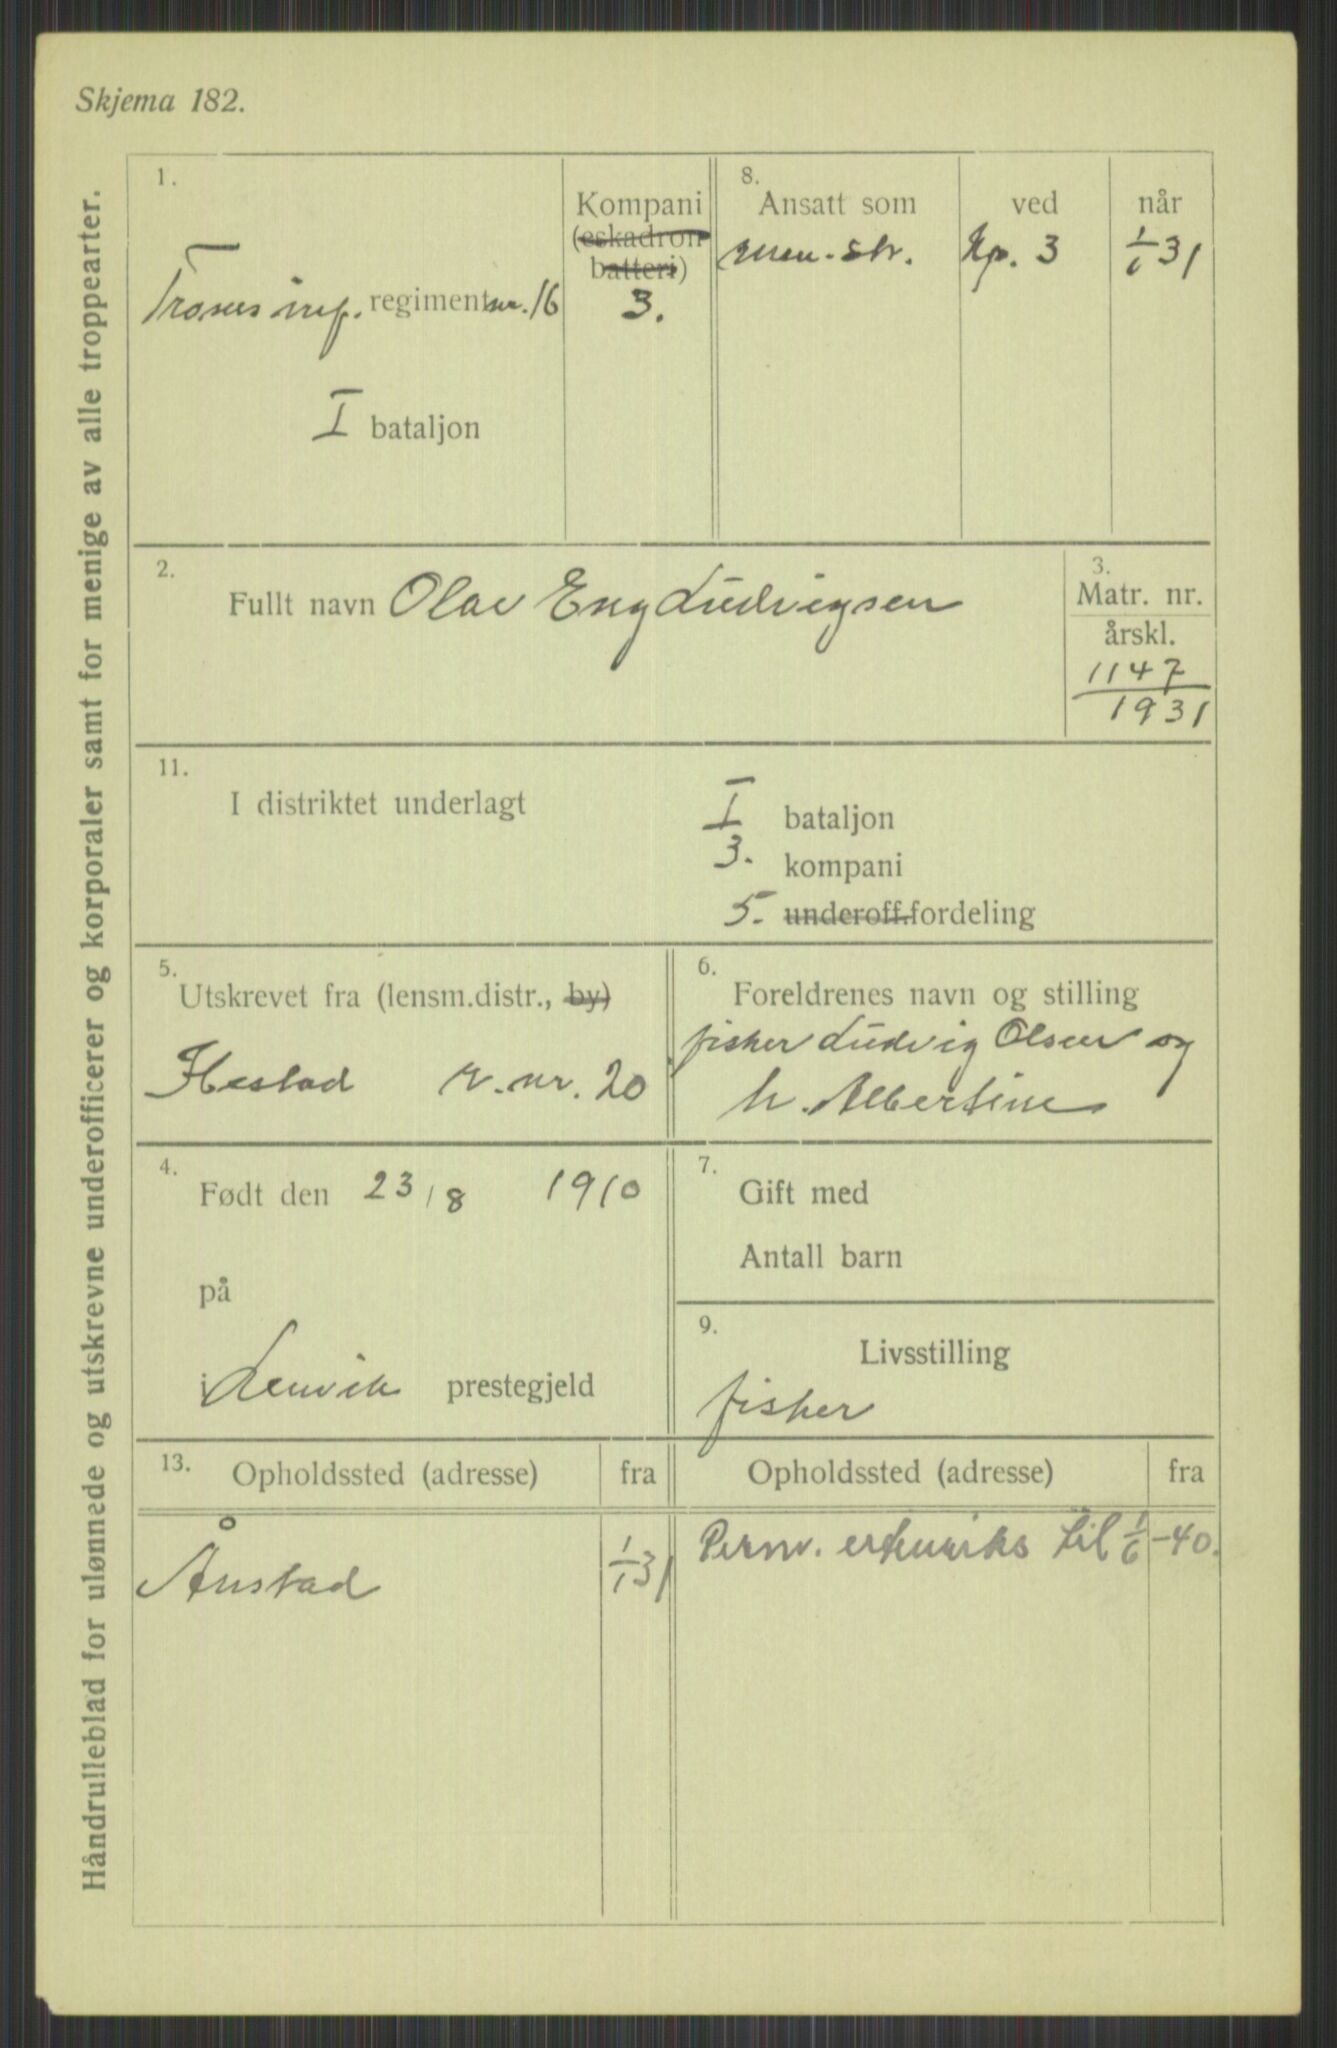 Skjema 182.
Håndrulleblad for ulønnede og utskrevne underofficerer og korporaler samt for menige av alle troppearter.
1.
Troms inf. regiment nr. 16
I bataljon
Kompani
(eskadron
batteri)
3.
8.
Ansatt som
men. str.
ved
Kp. 3
når
1/1 31
2.
Fullt navn Olav Eng Ludvigsen
3.
Matr. nr.
årskl.
1147
1931
11.
I distriktet underlagt
I bataljon
3. kompani
5. underoff.fordeling
5.
Utskrevet fra (lensm.distr., by)
r. nr. 20
6.
Foreldrenes navn og stilling
fisker Ludvig Olsen og
h. Albertine
4.
Født den 23/8 1910
på
i Lenvik prestegjeld
7.
Gift med
Antall barn
9.
Livsstilling
fisker
13.
Opholdssted (adresse) fra
Ånstad 1/1 31
Opholdssted (adresse) fra
Perm. til 1/6 -40.